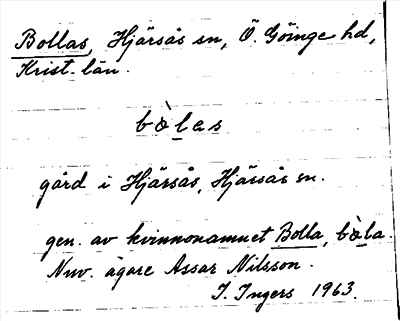 Bollas, Hjärsås sn, Ö. Göinge hd,
Krist. län.
bòlas
gård i Hjärsås, Hjärsås sn.
gen. av kvinnonamnet Bolla, bòla.
Nuv. ägare Assar Nilsson.
I. Ingers 1963.